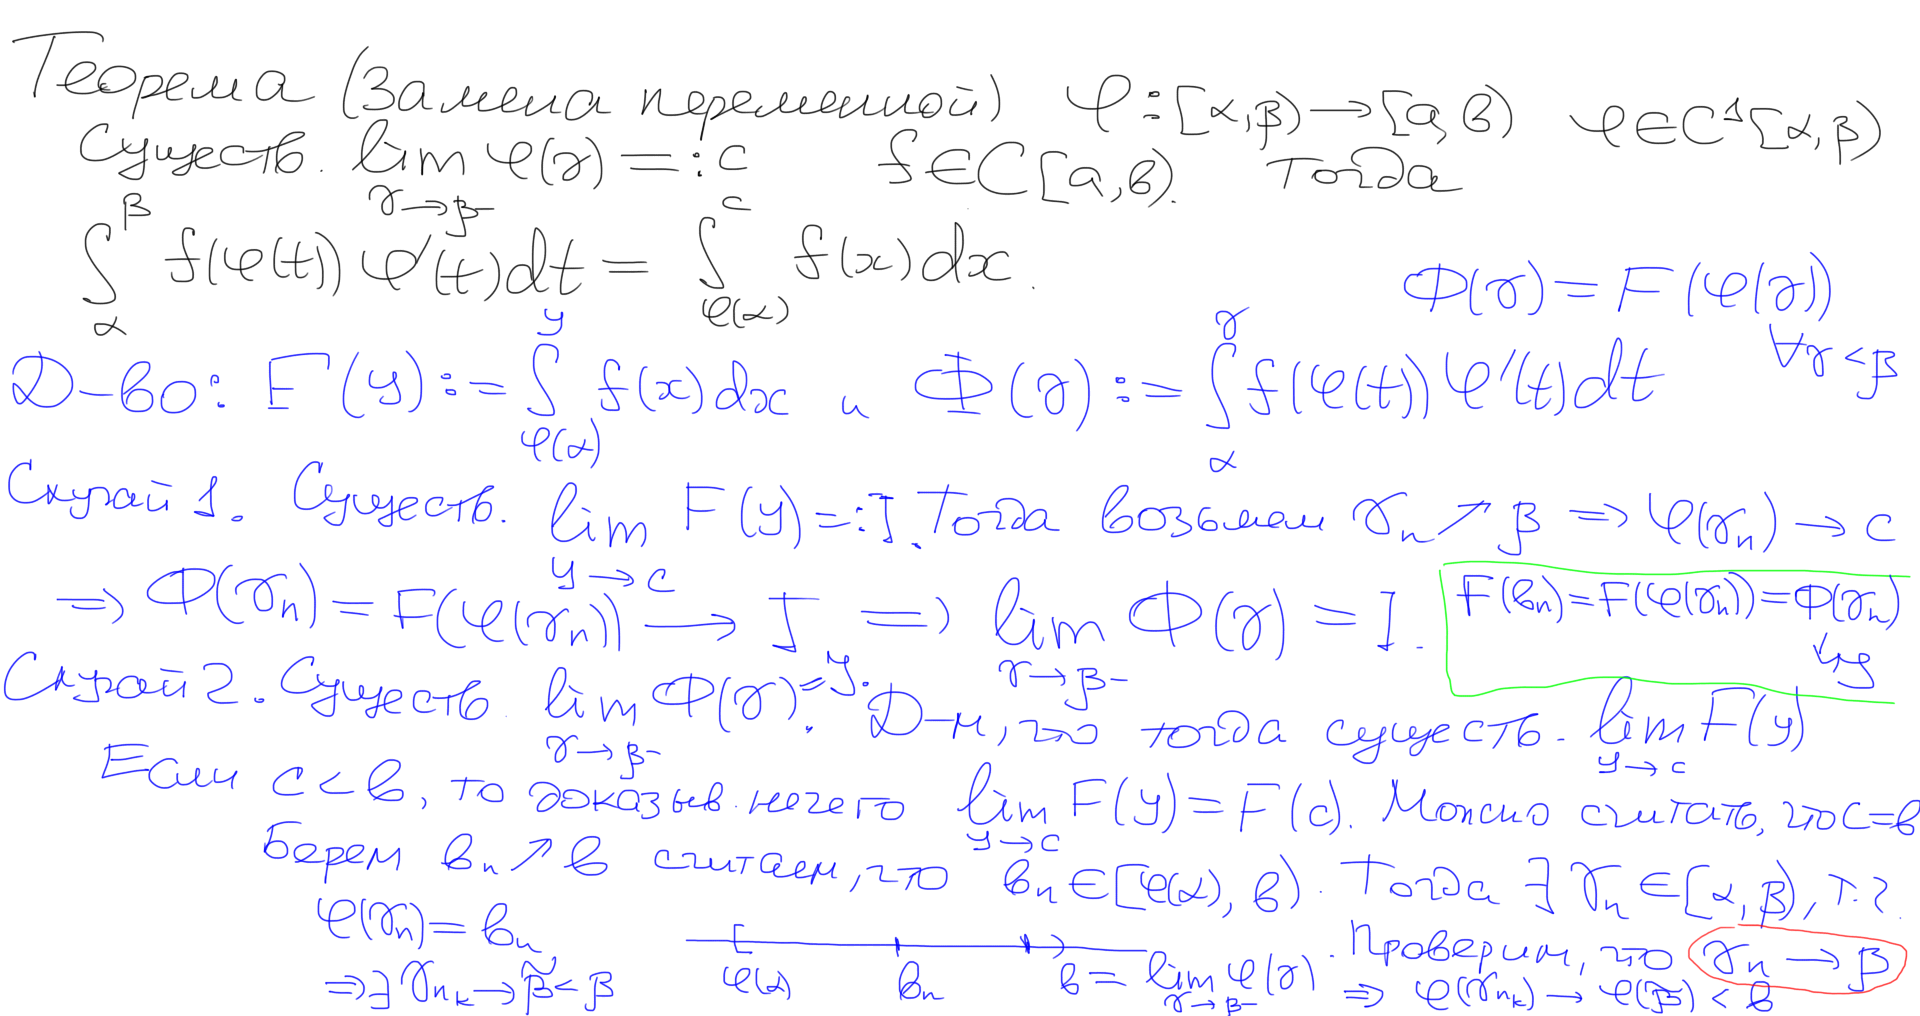 Теорема (Замена переменной) φ:[α,β)→[a,b) φ∈C¹[α,β)
Существ. lim_{γ→β-} φ(γ)=:c f∈C[a,b). Тогда
∫_α^β f(φ(t))φ'(t)dt = ∫_{φ(α)}^c f(x)dx.
Φ(γ)=F(φ(γ))
∀γ<β
Д-во: F(y):=∫_{φ(α)}^y f(x)dx и Φ(γ):=∫_α^γ f(φ(t))φ'(t)dt
Случай 1. Существ. lim_{y→c} F(y)=:I. Тогда возьмем γₙ↗β ⇒ φ(γₙ)→c
⇒ Φ(γₙ)=F(φ(γₙ))→I ⇒ lim_{γ→β-} Φ(γ)=I.
F(bₙ)=F(φ(γₙ))=Φ(γₙ)
↘ J
Случай 2. Существ. lim_{γ→β-} Φ(γ)=:J. Д-м, что тогда существ. lim_{y→c} F(y)
Если c<b, то доказыв. нечего lim_{y→c} F(y)=F(c). Можно считать, что c=b
Берем bₙ↗b считаем, что bₙ∈[φ(α),b). Тогда ∃ γₙ∈[α,β), т.ч.
φ(γₙ)=bₙ
φ(α) bₙ b=lim_{γ→β-} φ(γ). Проверим, что γₙ→β
⇒∃ γ_{n_k}→β̃<β ⇒ φ(γ_{n_k})→φ(β̃)<b